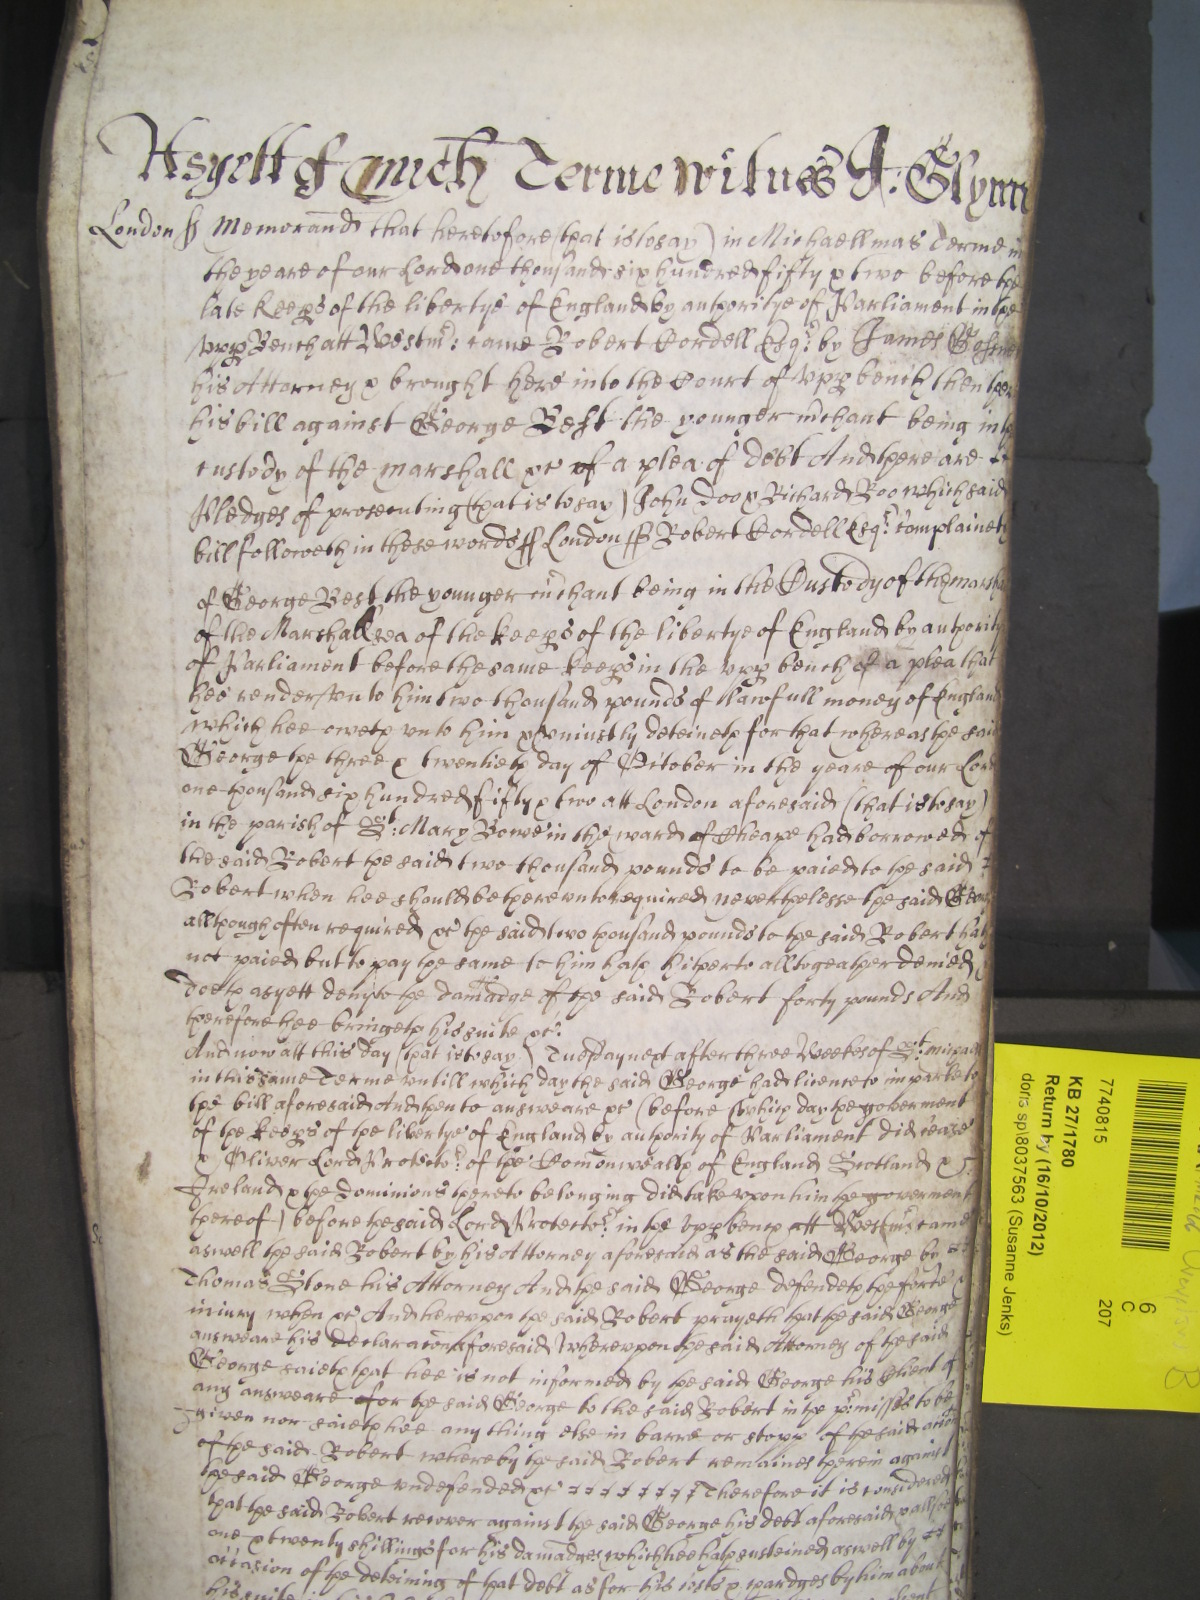 As yett of Mich Terme Witnes J: Glynn
London ss Memorand that heretofore (that is to say) in Michaellmas Terme in
the yeare of our Lord one thousand six hundred fifty & two before the
late Keepers of the libertye of England by authoritye of Parliament in the
upper Bench att Westmr: came Robert Cordell Esqr: by James
his Attorney & brought here into the Court of upper bench then there
his bill against George Best the younger mchant being in the
custody of the marshall &c of a plea of debt And there are
Pledges of prosecuting (that is to say) John Doo & Richard Roo which said
bill followeth in these words ss London ss Robert Cordell Esqr: complaineth
of George Best the younger mchant being in the Custody of the marshall
of the Marshallsea of the keepers of the libertye of England by authority
of Parliament before the same keepers in the upper bench of a plea that
hee render unto him two thousand pounds of lawfull money of England
which hee oweth unto him & uniustly deteineth for that whereas the said
George the three & twentieth day of October in the yeare of our Lord
one thousand six hundred fifty & two att London aforesaid (that is to say)
in the parish of St: Mary Bowe in the ward of Cheape had borrowed of
the said Robert the said two thousand pounds to be paied to the said
Robert when hee should be thereunto required neverthelesse the said George
allthough often required &c the said two thousand pounds to the said Robert hath
not paied but to pay the same to him hath hitherto alltogeather denied
doeth as yett deny to the damadge of the said Robert forty pounds And
therefore hee bringeth his suite &c:
And now att this day (that is to say) Tuesday next after three Weekes of St: Michaell
in this same Terme untill which day the said George had licence to imparle to
the bill aforesaid And then to answeare &c (before which day the goverment
of the keepers of the libertye of England by authority of Parliament did cease
& Oliver Lord Protector of the Comonwealth of England Scotland &
Ireland & the Dominions thereto belonging did take upon him the goverment
thereof) before the said Lord Protector in the upper bench att Westmr: came
aswell the said Robert by his Attorney aforesaid as the said George by
Thomas Stone his Attorney And the said George defendeth the force
iniury when &c And hereupon the said Robert prayeth that the said George
answeare his declaracon aforesaid whereupon the said Attorney of the said
George saieth that hee is not informed by the said George his Client of
any answeare for the said George to the said Robert in the premisses to be
given nor saieth hee any thing else in barre or stopp of the said accon
of the said Robert whereby the said Robert remaines therein against
the said George undefended &c Therefore it is considered
that the said Robert recover against the said George his debt aforesaid &
one & twenty shillings for his damadges which hee hath susteined aswell by
occasion of the deteining of that debt as for his costs & chardges by him about
his suite in
77408815
KB 27/1780
Return by (16/10/2012)
doris sp\8037563 (Susanne Jenks)
6
C
207
B